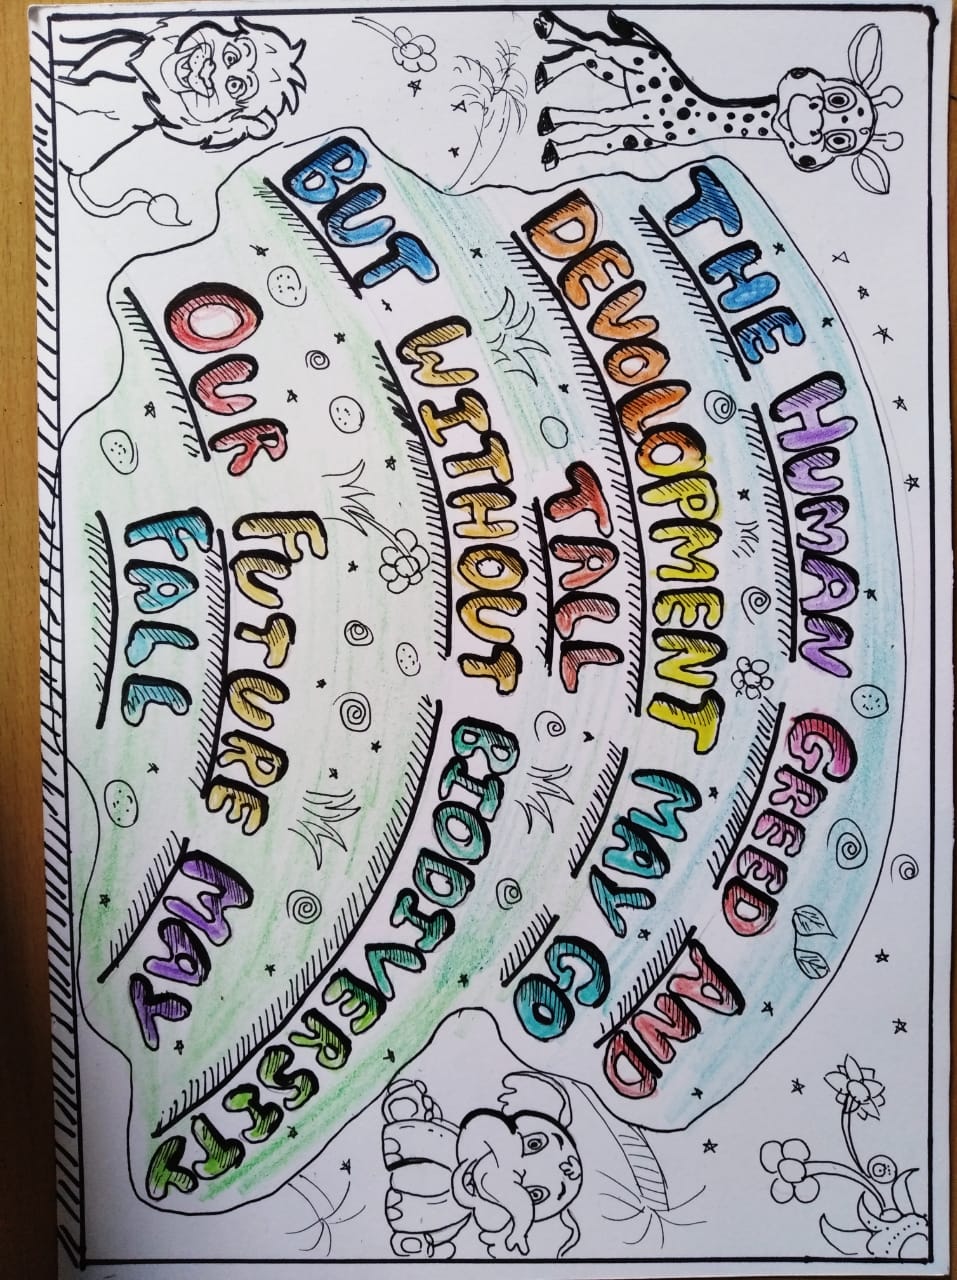 THE HUMAN GREED AND
DEVOLOPMENT MAY GO
TALL
BUT WITHOUT BIODIVERSITY
OUR FUTURE MAY
FALL